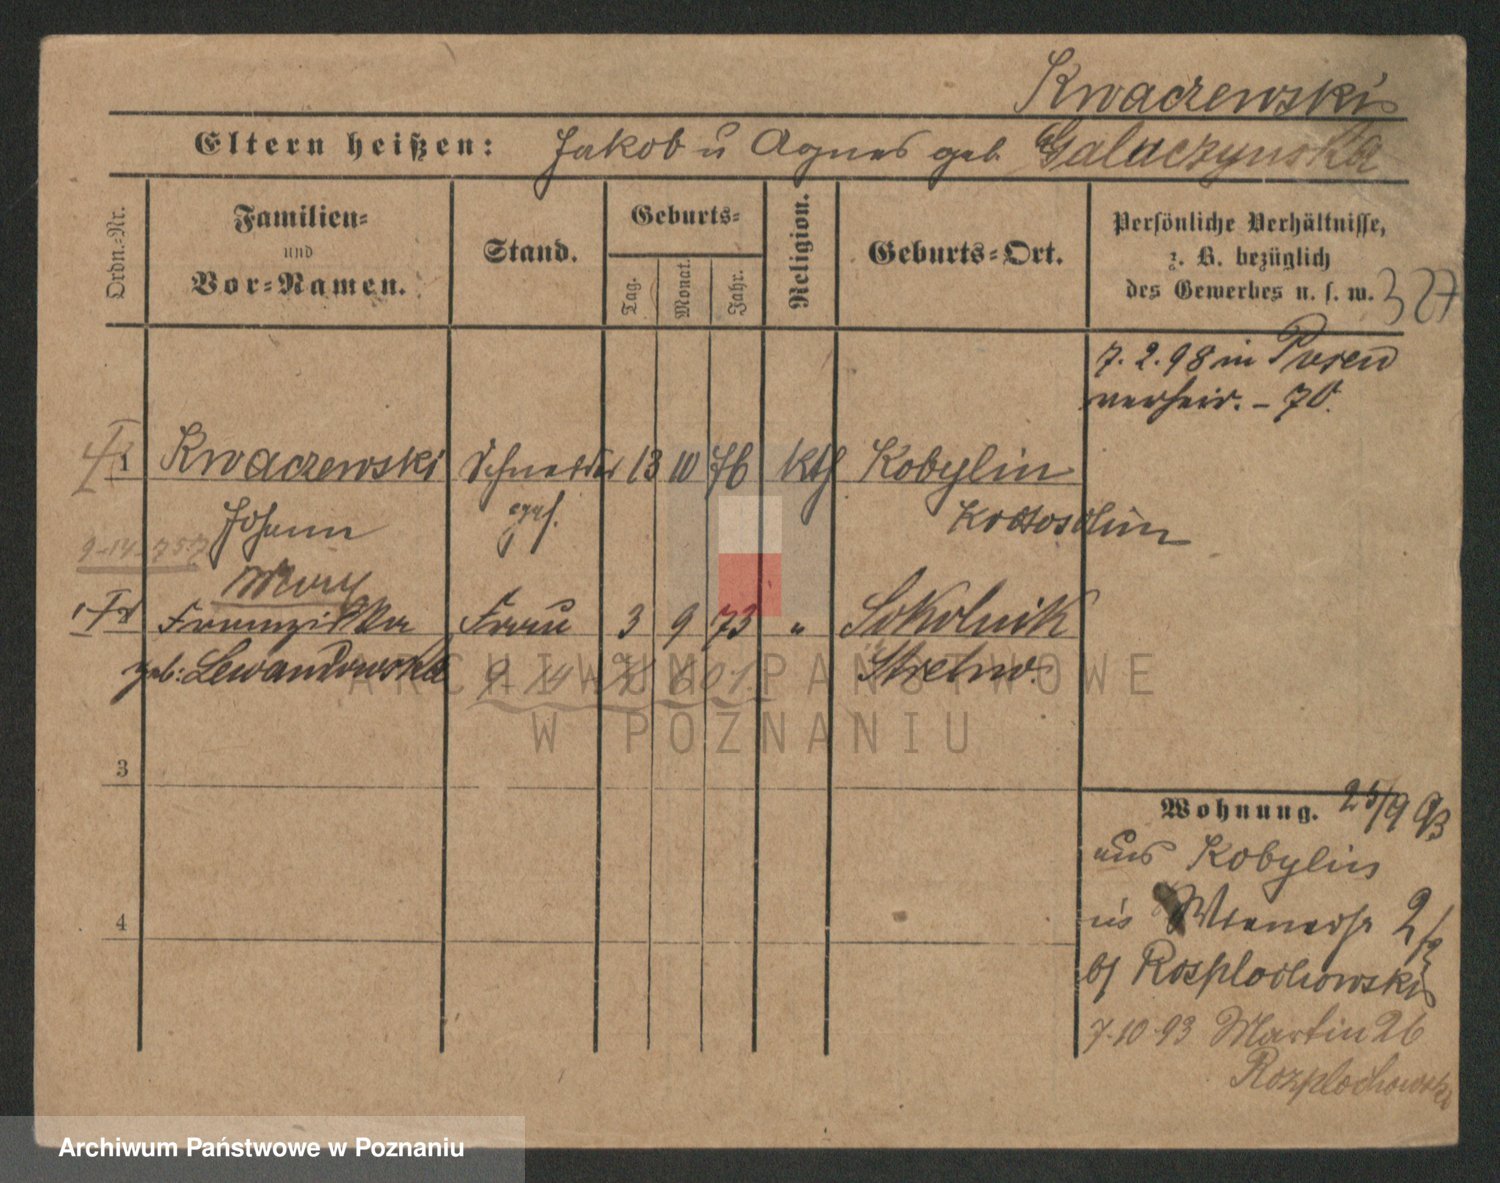 Kwaczewski
Eltern heißen: Jakob u Agnes geb. Galaczynska
Ordn.-Nr.
Familien-
und
Vor-Namen.
Stand.
Geburts-
Tag.
Monat.
Jahr.
Religion.
Geburts-Ort.
Persönliche Verhältnisse,
z. B. bezüglich
des Gewerbes u. s. w.
327
7. 2. 98 in Posen
verheir. - 70.
1 Kwaczewski Schneider 13 10 76 kth Kobylin
Johann ges. Krotoschin
9-14-757
Franziska Frau 3 9 73 " Sokolnik
geb: Lewandowska Strelno.
3
Wohnung. 25/9 93
aus Kobylin
in Wienerstr 2
b/ Rosplochowski
4
7-10-93 Martin 26
Rozplochowski
ARCHIWUM PAŃSTWOWE
W POZNANIU
Archiwum Państwowe w Poznaniu